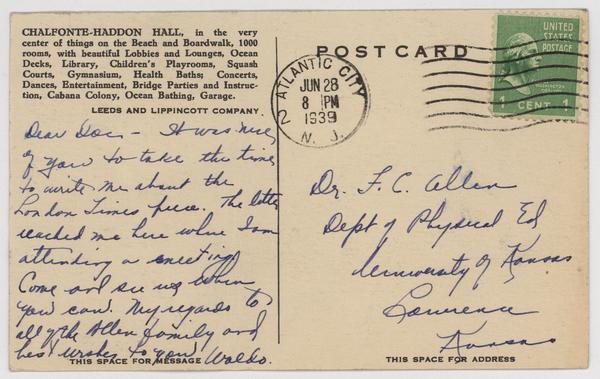 CHALFONTE-HADDON HALL, in the very
center of things on the Beach and Boardwalk, 1000
rooms, with beautiful Lobbies and Lounges, Ocean
Decks, Library, Children's Playrooms, Squash
Courts, Gymnasium, Health Baths; Concerts,
Dances, Entertainment, Bridge Parties and Instruc-
tion, Cabana Colony, Ocean Bathing, Garage.
LEEDS AND LIPPINCOTT COMPANY
Dear Doc - It was nice
of you to take the time
to write me about the
London Times piece. The letter
reached me here where I am
attending a meeting
Come and see us when
you can. My regards to
all of the Allen family and
best wishes to you Waldo.
THIS SPACE FOR MESSAGE
POST CARD
ATLANTIC CITY
2
JUN 28
8 PM
1939
N. J.
UNITED
STATES
POSTAGE
WASHINGTON
1 CENT 1
Dr. F. C. Allen
Dept of Physical Ed
University of Kansas
Lawrence
Kansas
THIS SPACE FOR ADDRESS